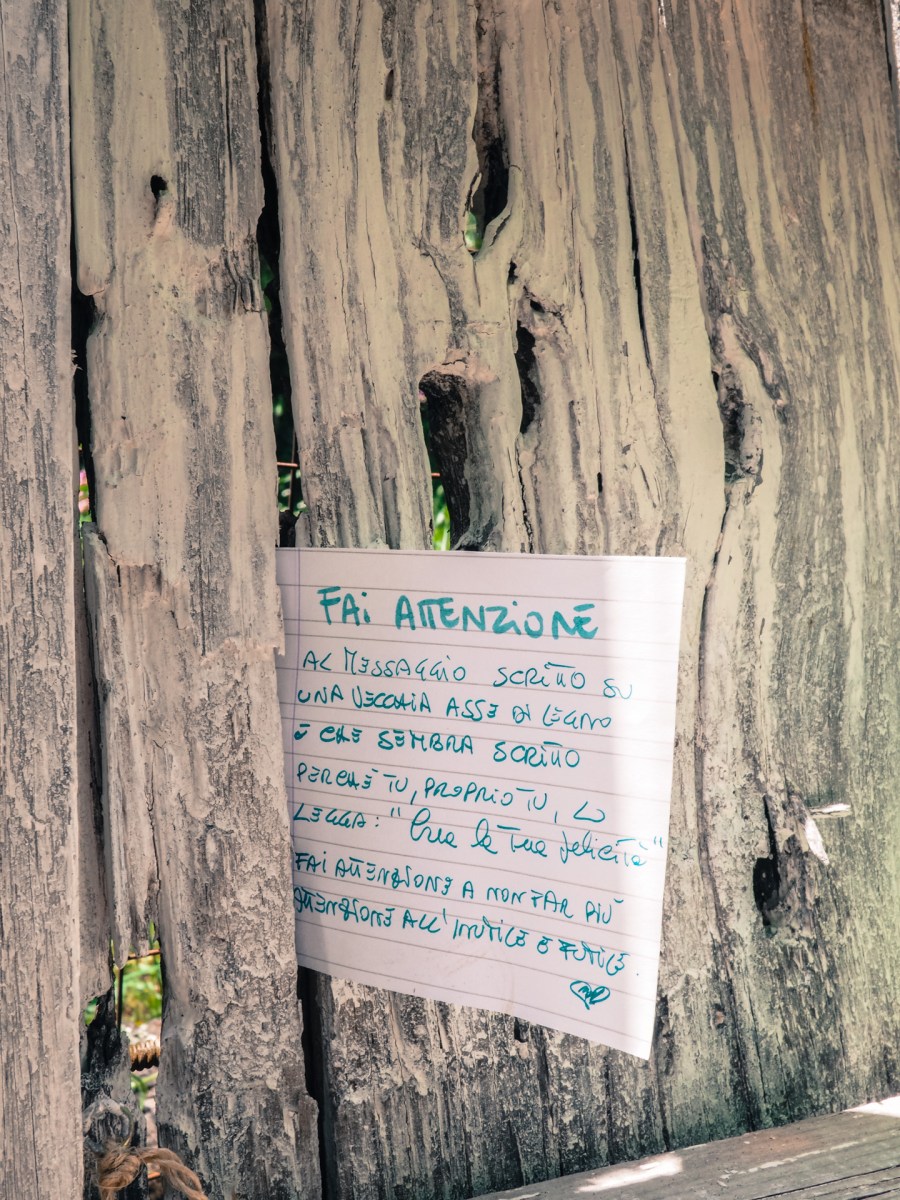 FAI ATTENZIONE
AL MESSAGGIO SCRITTO SU
UNA VECCHIA ASSE DI LEGNO
E CHE SEMBRA SCRITTO
PERCHÈ TU, PROPRIO TU, LO
LEGGA: " la tua felicità"
FAI ATTENZIONE A NON FAR PIÙ
ATTENZIONE ALL'INUTILE E FUTILE.